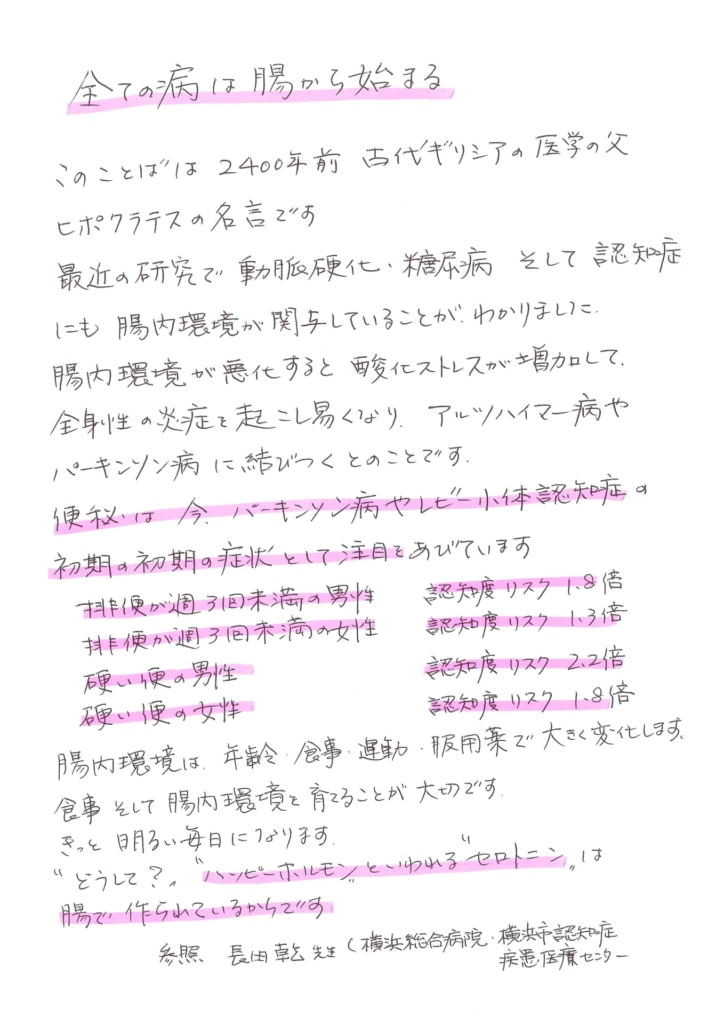 全ての病は腸から始まる
このことばは 2400年前 古代ギリシアの医学の父
ヒポクラテスの名言です
最近の研究で 動脈硬化・糖尿病 そして 認知症
にも 腸内環境が関与していることが、わかりました。
腸内環境が悪化すると 酸化ストレスが増加して、
全身性の炎症を起こし易くなり、アルツハイマー病や
パーキンソン病に結びつくとのことです。
便秘は 今、パーキンソン病やレビー小体認知症の
初期の初期の症状として注目をあびています
排便が週3回未満の男性 認知度リスク 1.8倍
排便が週3回未満の女性 認知度リスク 1.3倍
硬い便の男性 認知度リスク 2.2倍
硬い便の女性 認知度リスク 1.8倍
腸内環境は、年齢・食事・運動・服用薬で大きく変化します。
食事そして腸内環境を育てることが大切です。
きっと 明るい毎日になります。
“どうして?” “ハッピーホルモン”といわれる“セロトニン”は
腸で作られているからです
参照 長田乾先生(横浜総合病院・横浜市認知症
疾患医療センター